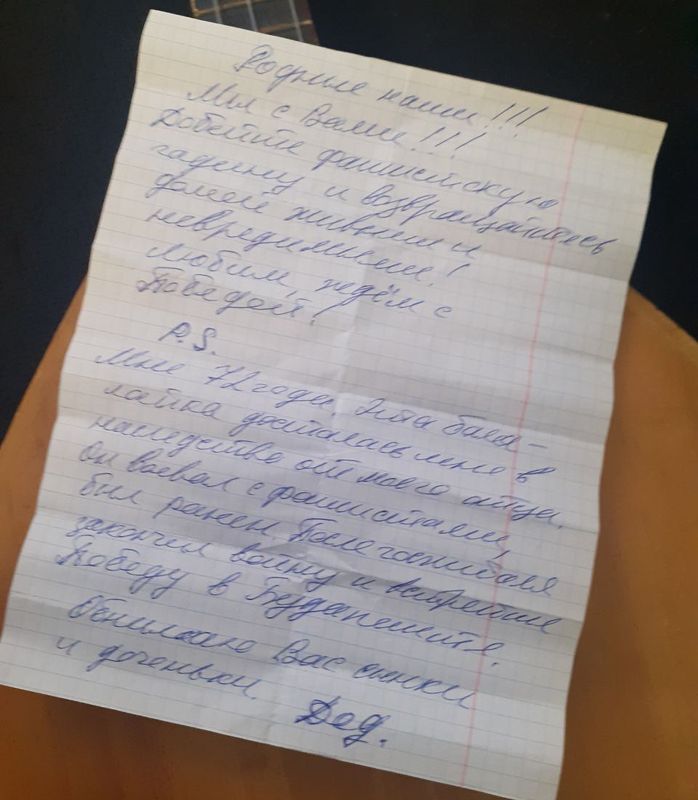 Родные наши!!!
Мы с Вами!!!
Добейте фашистскую
гадину и возвращайтесь
домой живыми и
невредимыми!
Любим, ждём с
Победой!
P.S.
Мне 72 года. Эта бала-
лайка досталась мне в
наследство от моего отца.
Он воевал с фашистами,
был ранен. После госпиталя
закончил войну и встретил
Победу в Будапеште.
Обнимаю Вас сынки
и доченьки. Дед.